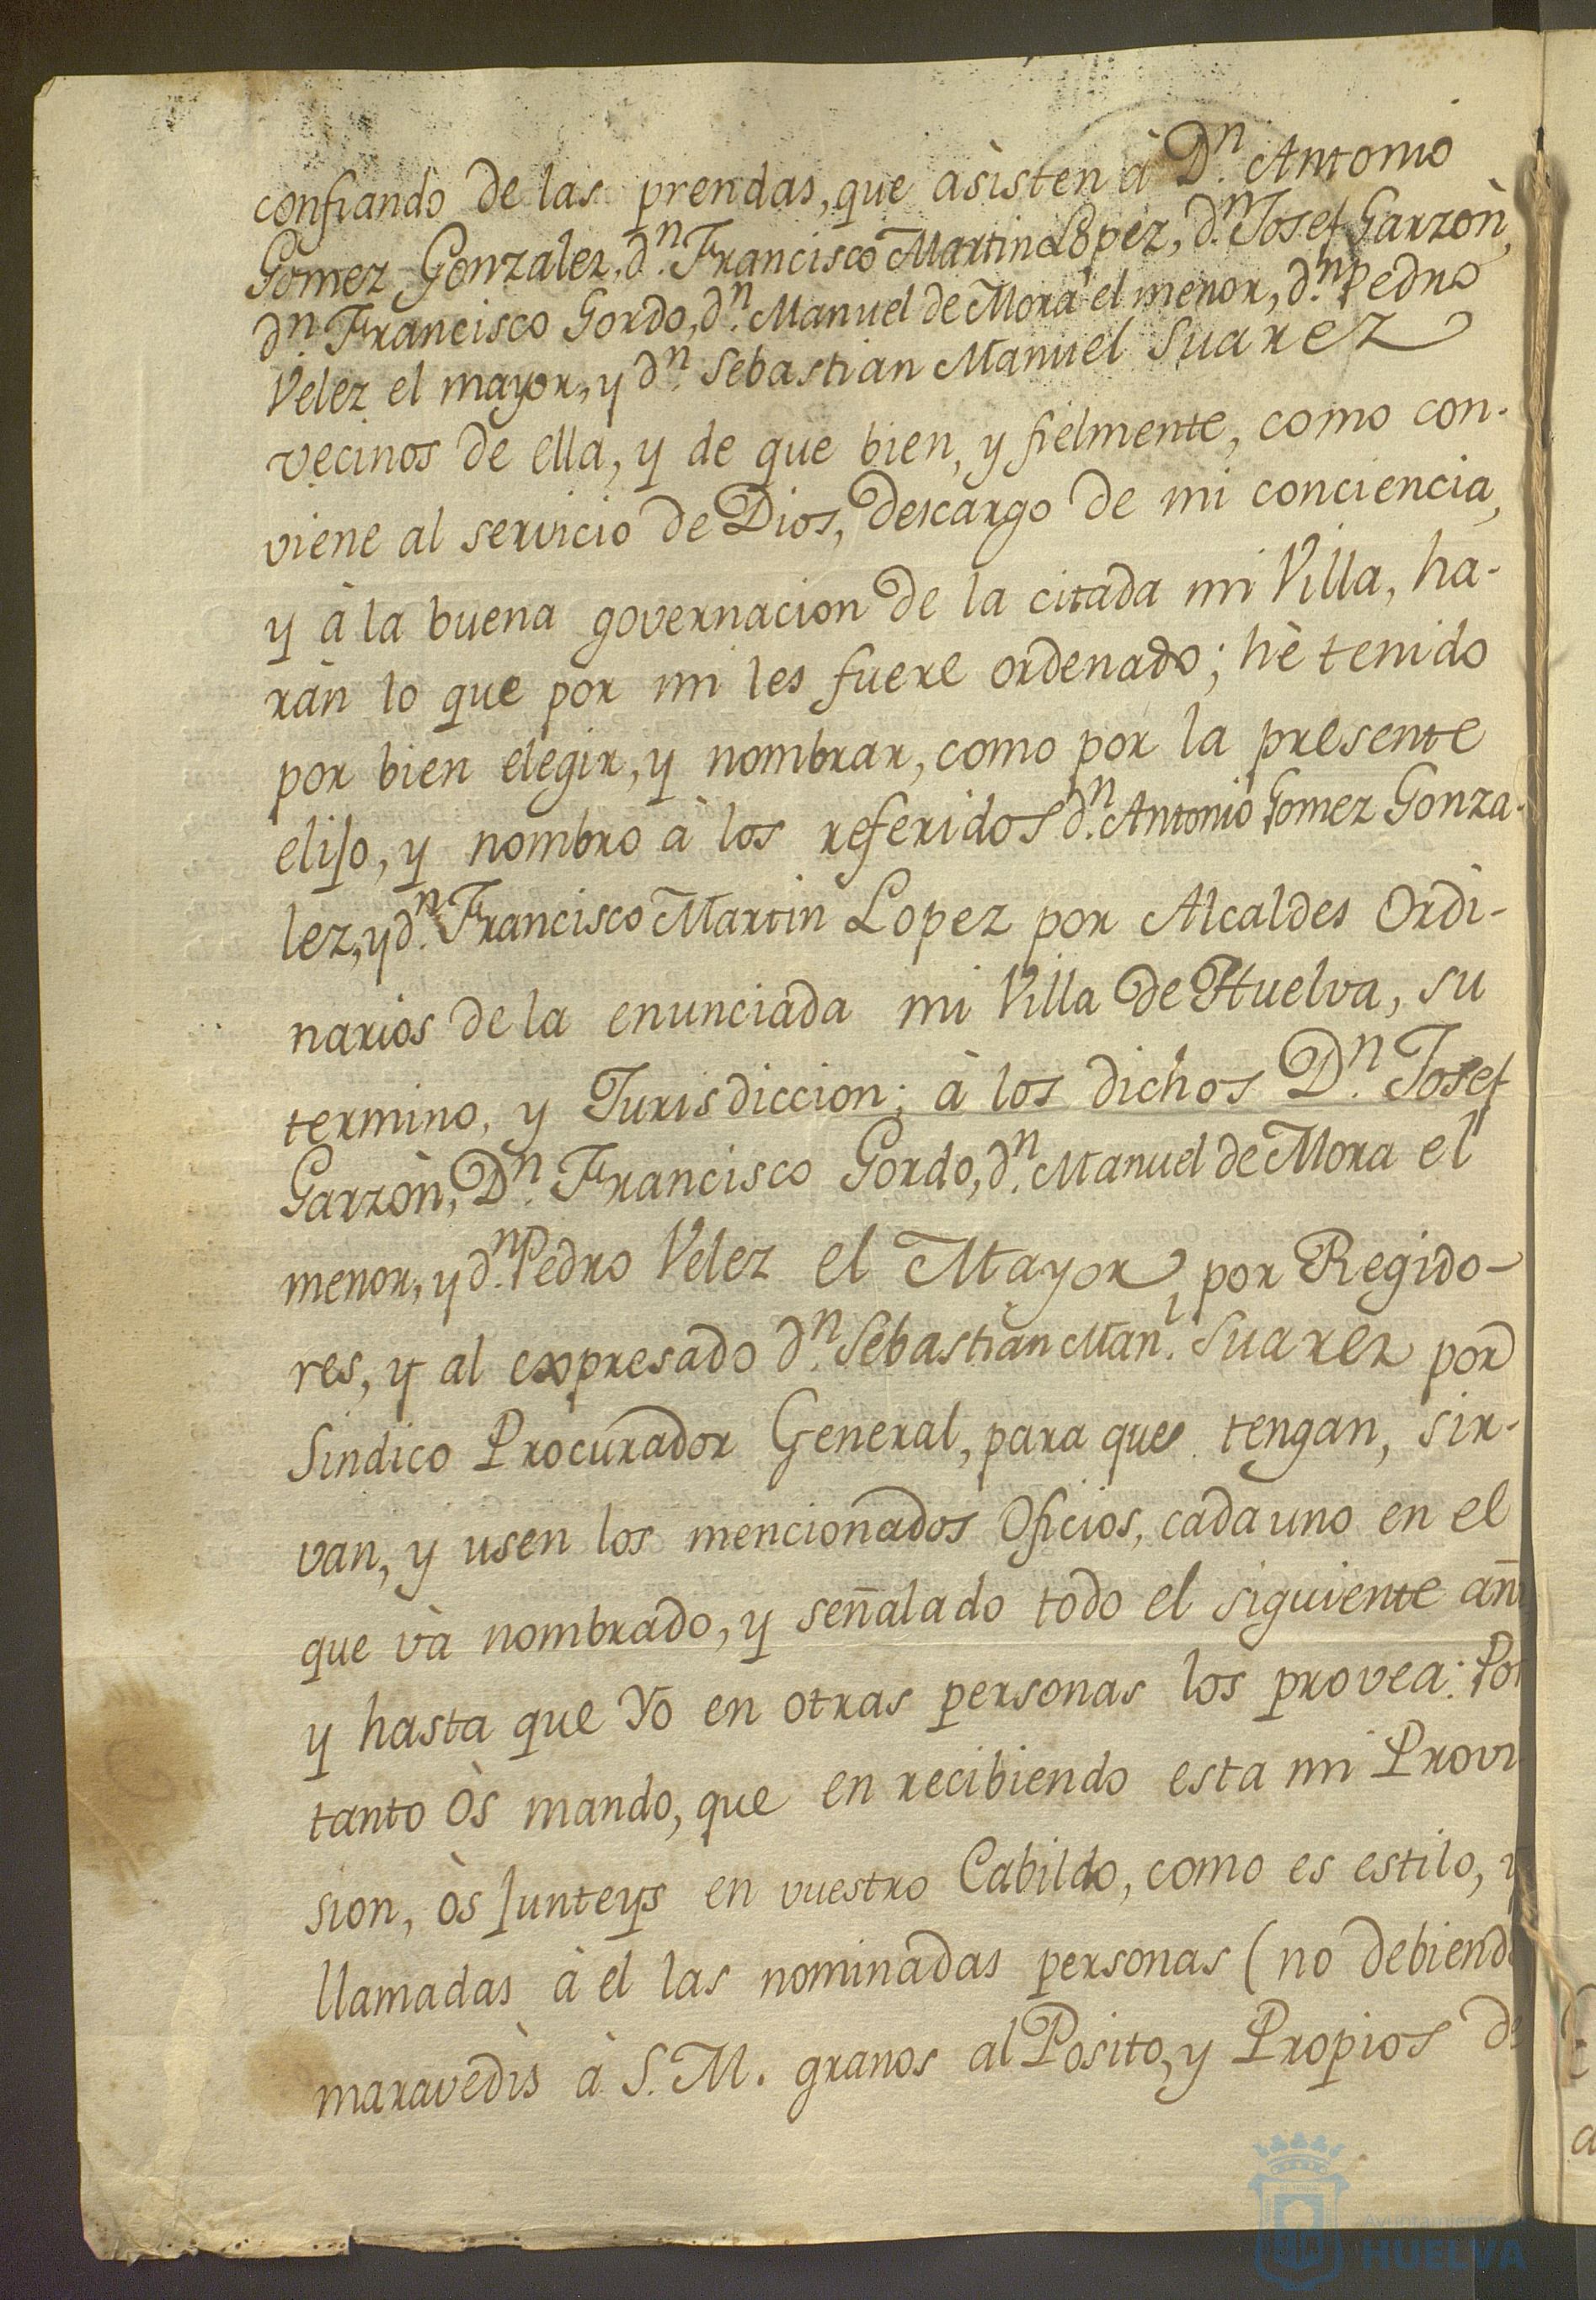 confiando de las prendas, que àsisten à Dn. Antonio
Gomez Gonzalez, dn. Francisco Martin Lòpez, dn. Josef Garzòn,
dn. Francisco Gordo, dn. Manuel de Mora el menor, dn. Pedro
Velez el mayor, y dn. Sebastian Manuel Suarez
vecinos de ella, y de que bien, y fielmente, como con-
viene al servicio de Dios, descargo de mi conciencia,
y à la buena governacion de la citada mi Villa, ha-
ràn lo que por mi les fuere ordenado; hè tenido
por bien elegir, y nombrar, como por la presente
elijo, y nombro à los referidos dn. Antonio Gomez Gonza-
lez, y dn. Francisco Martin Lopez por Alcaldes Ordi-
narios de la enunciada mi Villa de Huelva, su
termino, y Jurisdiccion; à los dichos Dn. Josef
Garzòn, Dn. Francisco Gordo, dn. Manuel de Mora el
menor, y dn. Pedro Velez el Mayor, por Regido-
res, y al expresado dn. Sebastian Manl. Suarez por
Sindico Procurador General, para que tengan, sir-
van, y usen los mencionados Oficios, cada uno en el
que và nombrado, y señalado todo el siguiente añ
y hasta que Yo en otras personas los provea: Por
tanto Òs mando, que en recibiendo esta mi Provi
sion, òs junteys en vuestro Cabildo, como es estilo, y
llamadas à el las nominadas personas (no debiendo
maravedìs à S. M. granos al Posito, y Propios de
Ayuntamiento
HUELVA